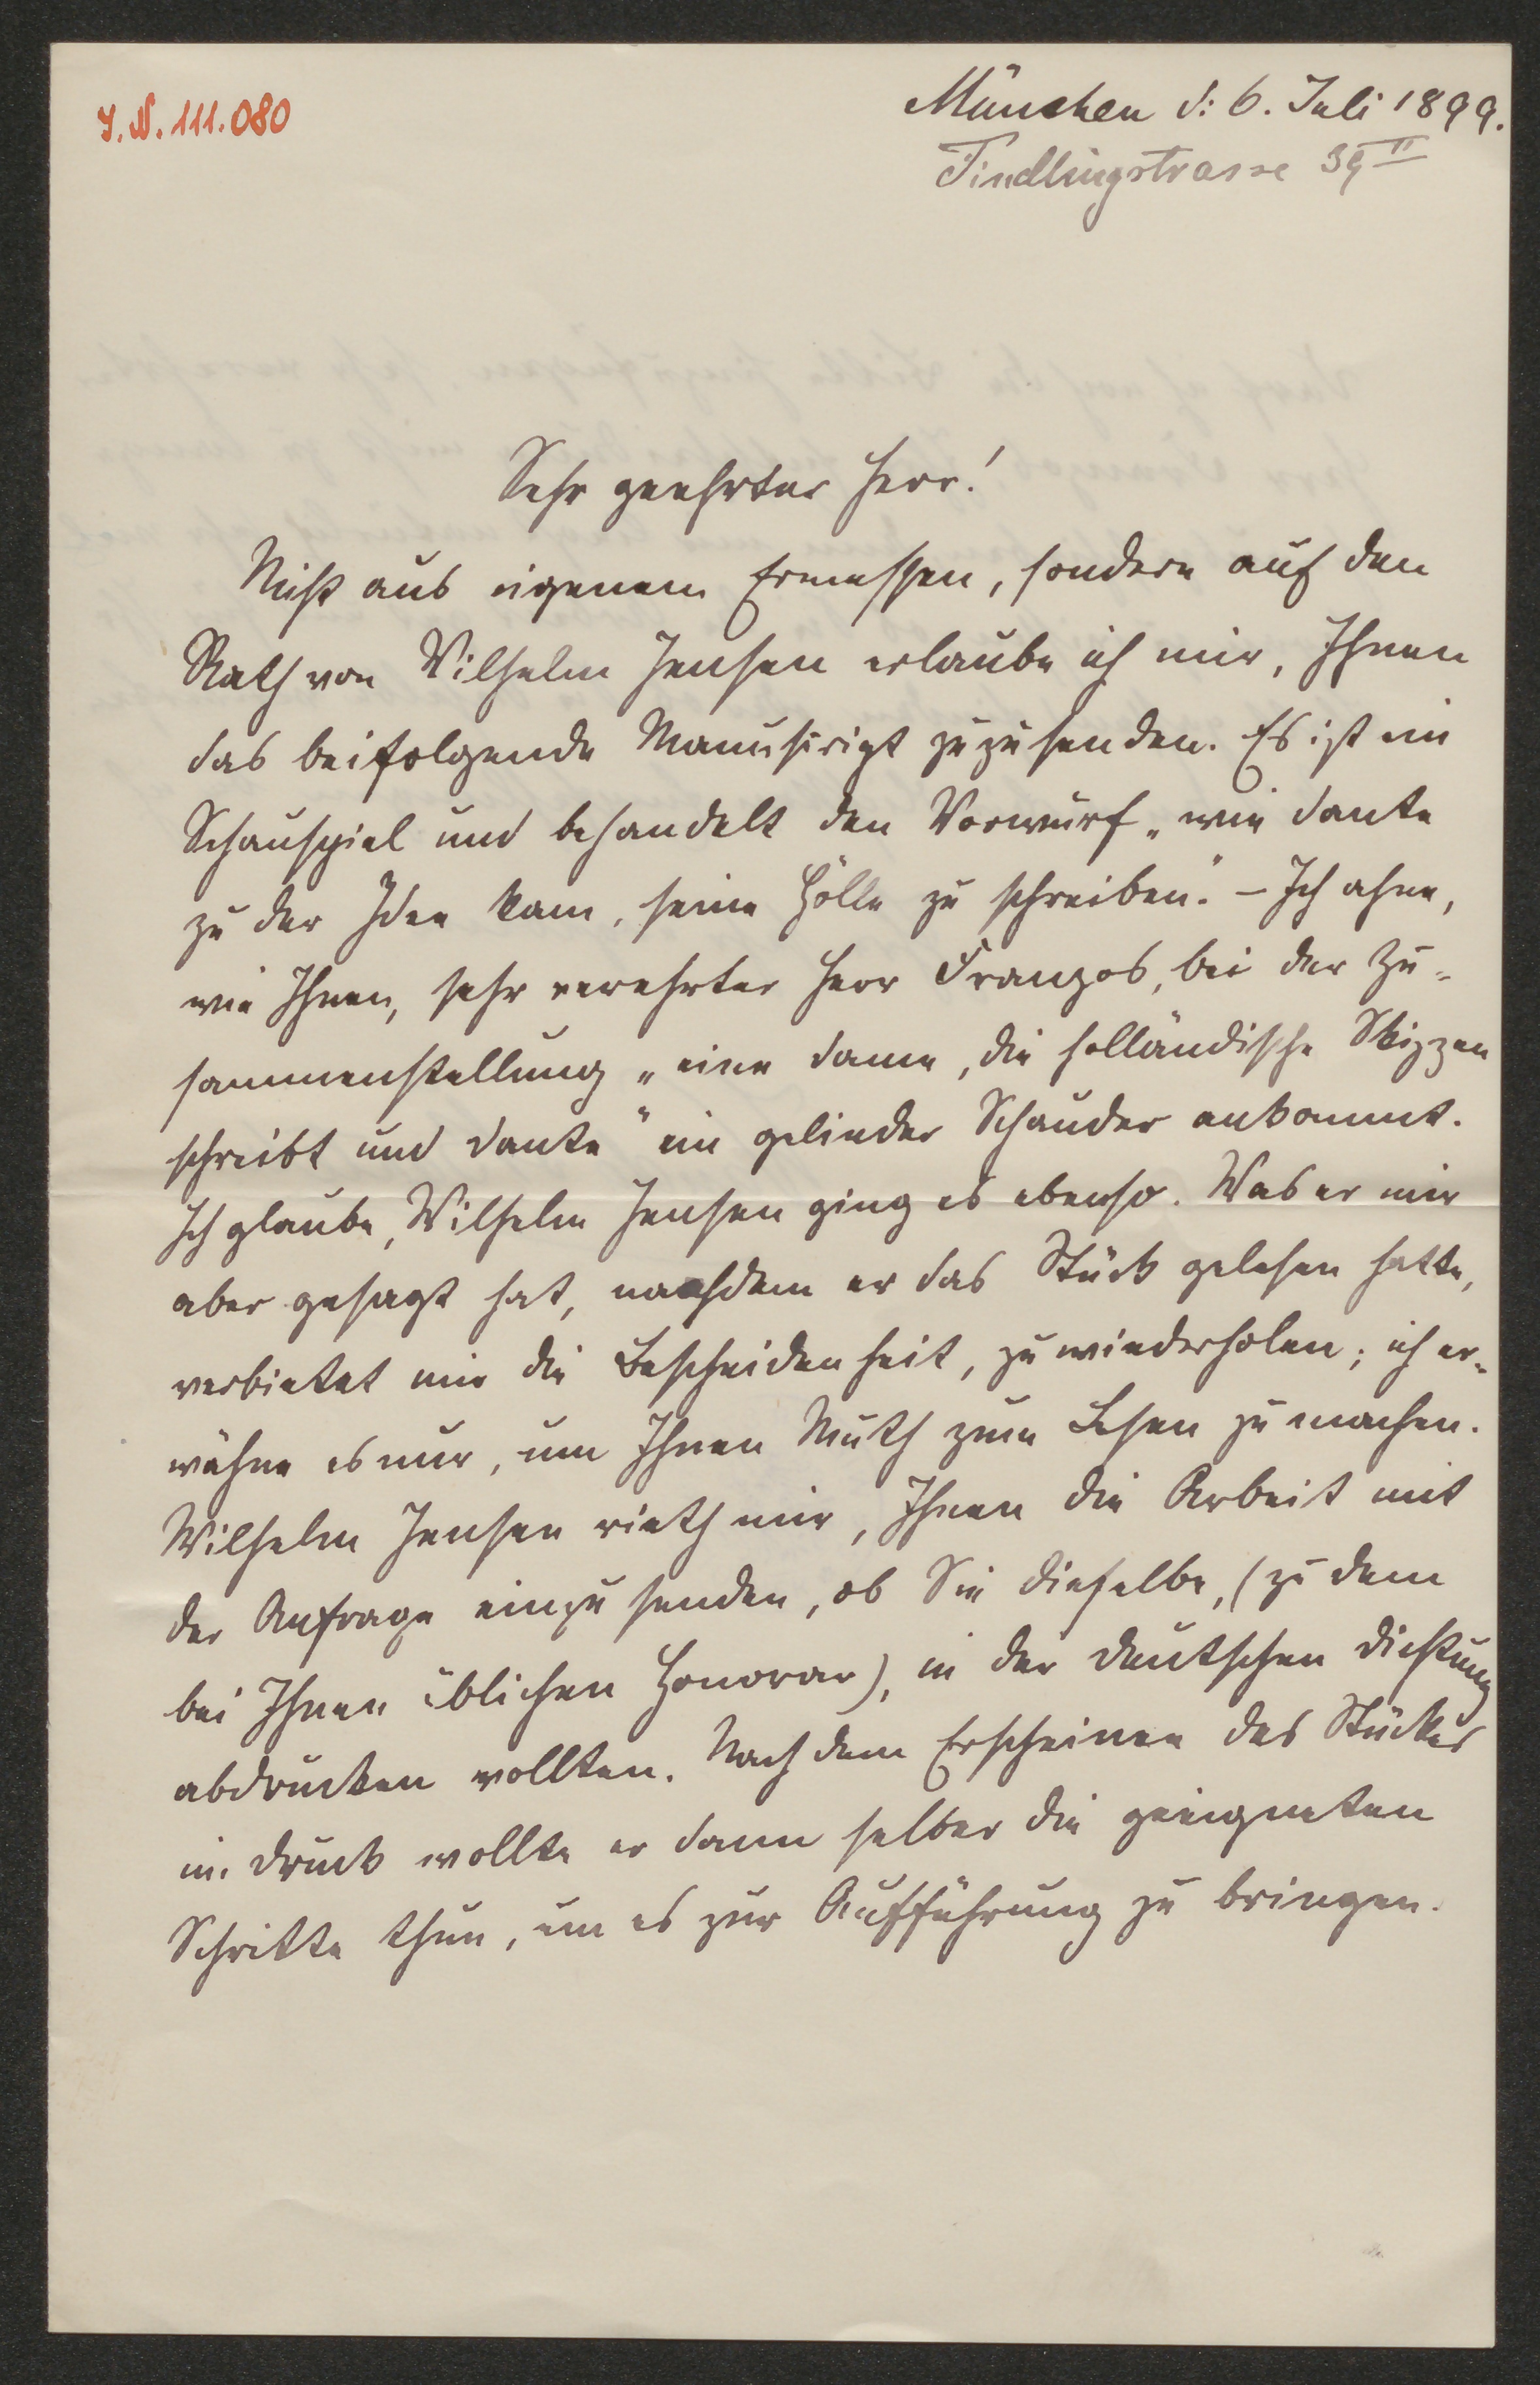 J. N. 111.080
München d: 6. Juli 1899.
Findlingstrasse 39 II
Sehr geehrter Herr!
Nicht aus eigenem Ermessen, sondern auf den
Rath von Wilhelm Jensen erlaube ich mir, Ihnen
das beifolgende Manuscript zuzusenden. Es ist ein
Schauspiel und behandelt den Vorwurf „wie Dante
zu der Idee kam, seine Hölle zu schreiben." – Ich ahne,
wie Ihnen, sehr verehrter Herr Franzos, bei der Zu-
sammenstellung „eine Dame, die holländische Skizzen
schreibt und Dante" ein gelinder Schauder ankommt.
Ich glaube, Wilhelm Jensen ging es ebenso. Was er mir
aber gesagt hat, nachdem er das Stück gelesen hatte,
verbietet mir die Bescheidenheit, zu wiederholen; ich er-
wähne es nur, um Ihnen Muth zum Lesen zu machen.
Wilhelm Jensen rieth mir, Ihnen die Arbeit mit
der Anfrage einzusenden, ob Sie dieselbe, (zu dem
bei Ihnen üblichen Honorar), in der Deutschen Dichtung
abdrucken wollten. Nach dem Erscheinen des Stückes
im Druck wollte er dann selber die geeigneten
Schritte thun, um es zur Aufführung zu bringen.